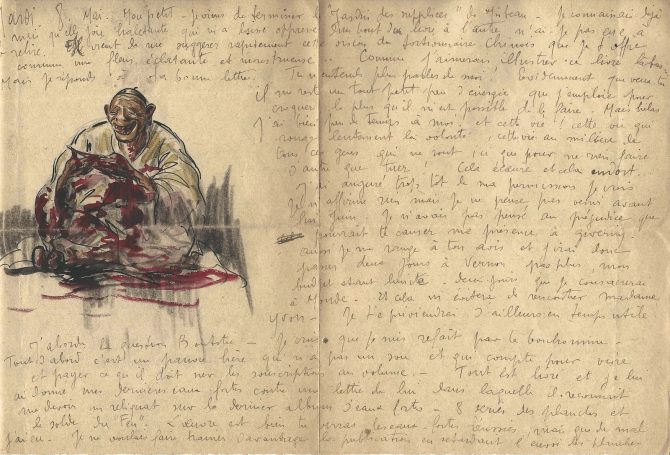 Mardi 8 Mai. Mon petit - je viens de terminer le "Jardin des supplices" de Mirbeau - Je connaissais déjà
mais qu'elle joie haletante qui m'a laissé oppressé d'un bout du livre à l'autre n'ai-je pas eue à
relire. Il vient de me suggérer rapidement cette vision du tortionnaire Chinois que je t'offre
comme une fleur éclatante et monstrueuse. Comme j'aimerais illustrer ce livre
Mais je réponds à ta bonne lettre. Tu m'entends plus parler de moi! Évidemment
il me reste un tout petit peu d'énergie que j'emploie pour
croquer le plus qu'il m'est possible de le faire. Mais hélas
j'ai bien peu de temps à moi. et cette vie! cette vie qui
ronge lentement la volonté, cette vie au milieu de
tous ces gens qui ne sont ici que pour ne rien faire
d'autre que tuer! Cela écœure et cela endort.
J'ai auguré trop tôt de ma permission je vois
rien mais je ne pense pas venir avant
fin Juin. Je n'avais pas pensé au préjudice que
pourrait te causer ma présence à Giverny -
aussi je me range à ton avis et j'irai donc
passer deux jours à Vernon pas plus, mon
budget étant limité. Deux jours que je consacrerai
à Monde. Et cela m'évitera de rencontrer madame
Yvon - Je te préviendrai d'ailleurs en temps utile
J'aborde la question - Je crois que je suis refait par le bonhomme -
Tout d'abord c'est un pauvre hère qui n'a pas un sou et qui compte pour vivre
et payer ce qu'il doit sur les souscriptions au volume. - Tout est livré et je lui
ai donné mes dernières eaux-fortes contre une lettre de lui dans laquelle il reconnait
me devoir un reliquat sur le dernier album d'eaux-fortes - 8 séries des planches et
le solde du "Feu" - L'œuvre est bien tu verras les eaux-fortes aussi, mais que de mal
j'ai eu. Je ne voulais faire traîner davantage les publications en retardant l'envoi des planches